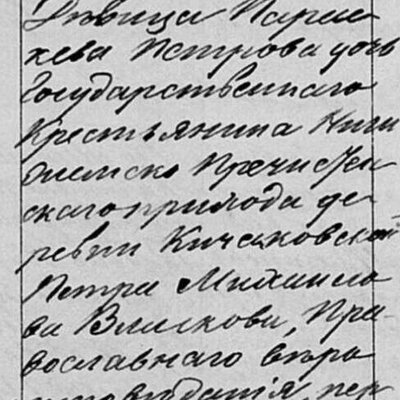 Дѣвица Парас
кева Петрова дочь
Государственнаго
Крестьянина Ниги
жемско Пречистен
скаго прихода де-
ревни Кичаковской
Петра Михаило
ва Власкова, Пра
вославнаго вѣро
исповѣданія, пер